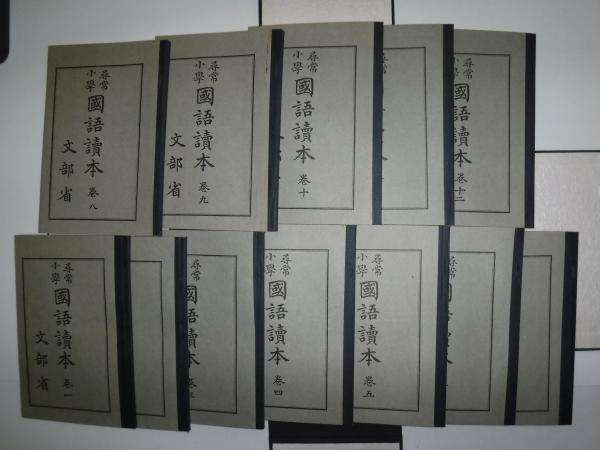 尋常
小學
國語讀本 卷八
文部省
尋常
小學
國語讀本 卷九
文部省
尋常
小學
國語讀本 卷十
卷十二
尋常
小學
國語讀本 卷一
文部省
尋常
國語讀本 卷三
尋常
小學
國語讀本 卷四
尋常
小學
國語讀本 卷五
尋常